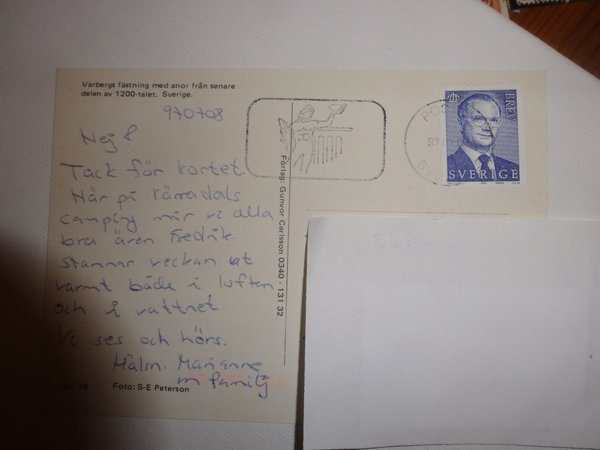 Varbergs fästning med anor från senare
delen av 1200-talet. Sverige.
970708
Hej!
Tack för kortet
Här på Rårådals
camping mår vi alla
bra även Fredrik.
stannar veckan ut
varmt både i luften
och i vattnet
Vi ses och hörs.
Hälsn. Marianne
m familj
Foto: S-E Peterson
Förlag: Gunvor Carlsson 0340 - 131 32
BREV
SVERIGE